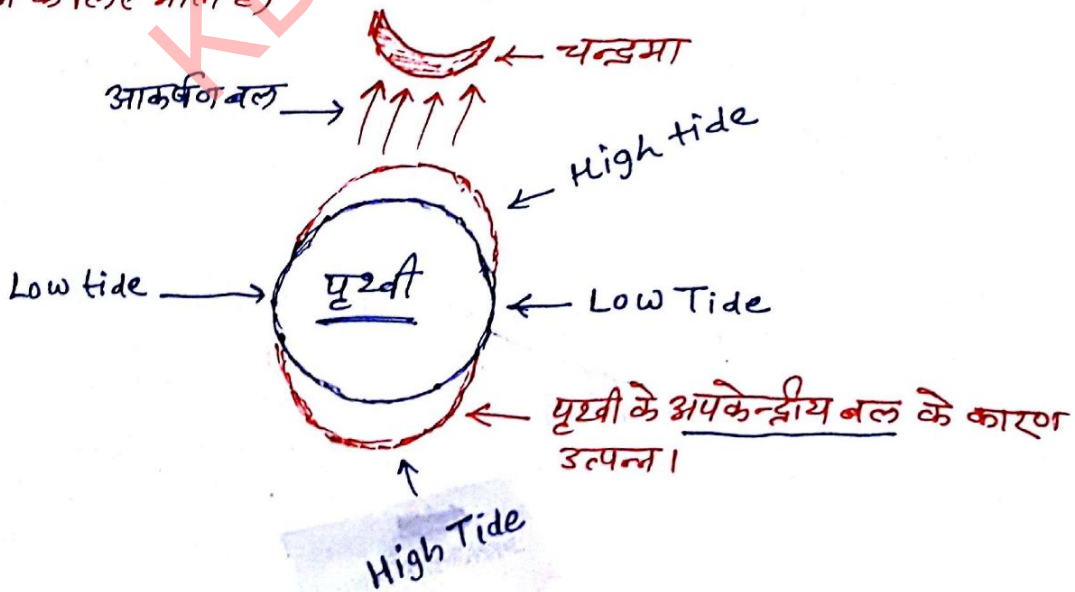 के लिए
चन्द्रमा
आकर्षण बल
High tide
Low tide
पृथ्वी
Low Tide
पृथ्वी के अपकेन्द्रीय बल के कारण
उत्पन्न।
High Tide